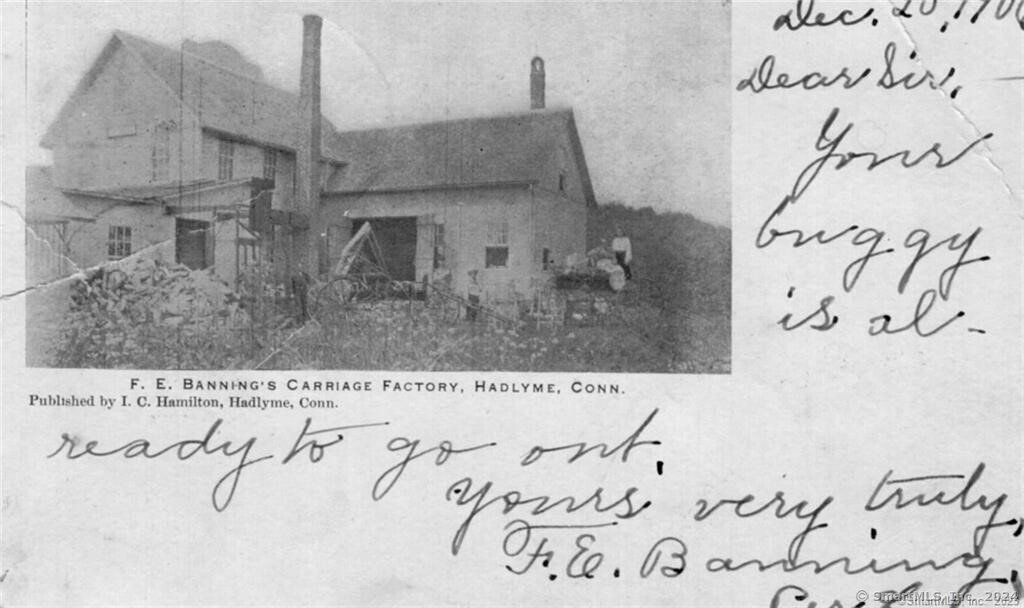 Dec. 20, 190
Dear Sir,
Your
buggy
is al-
F. E. Banning's Carriage Factory, Hadlyme, Conn.
Published by I. C. Hamilton, Hadlyme, Conn.
ready to go out.
Yours very truly,
F. E. Banning,
© SmartMLS, Inc. 2024